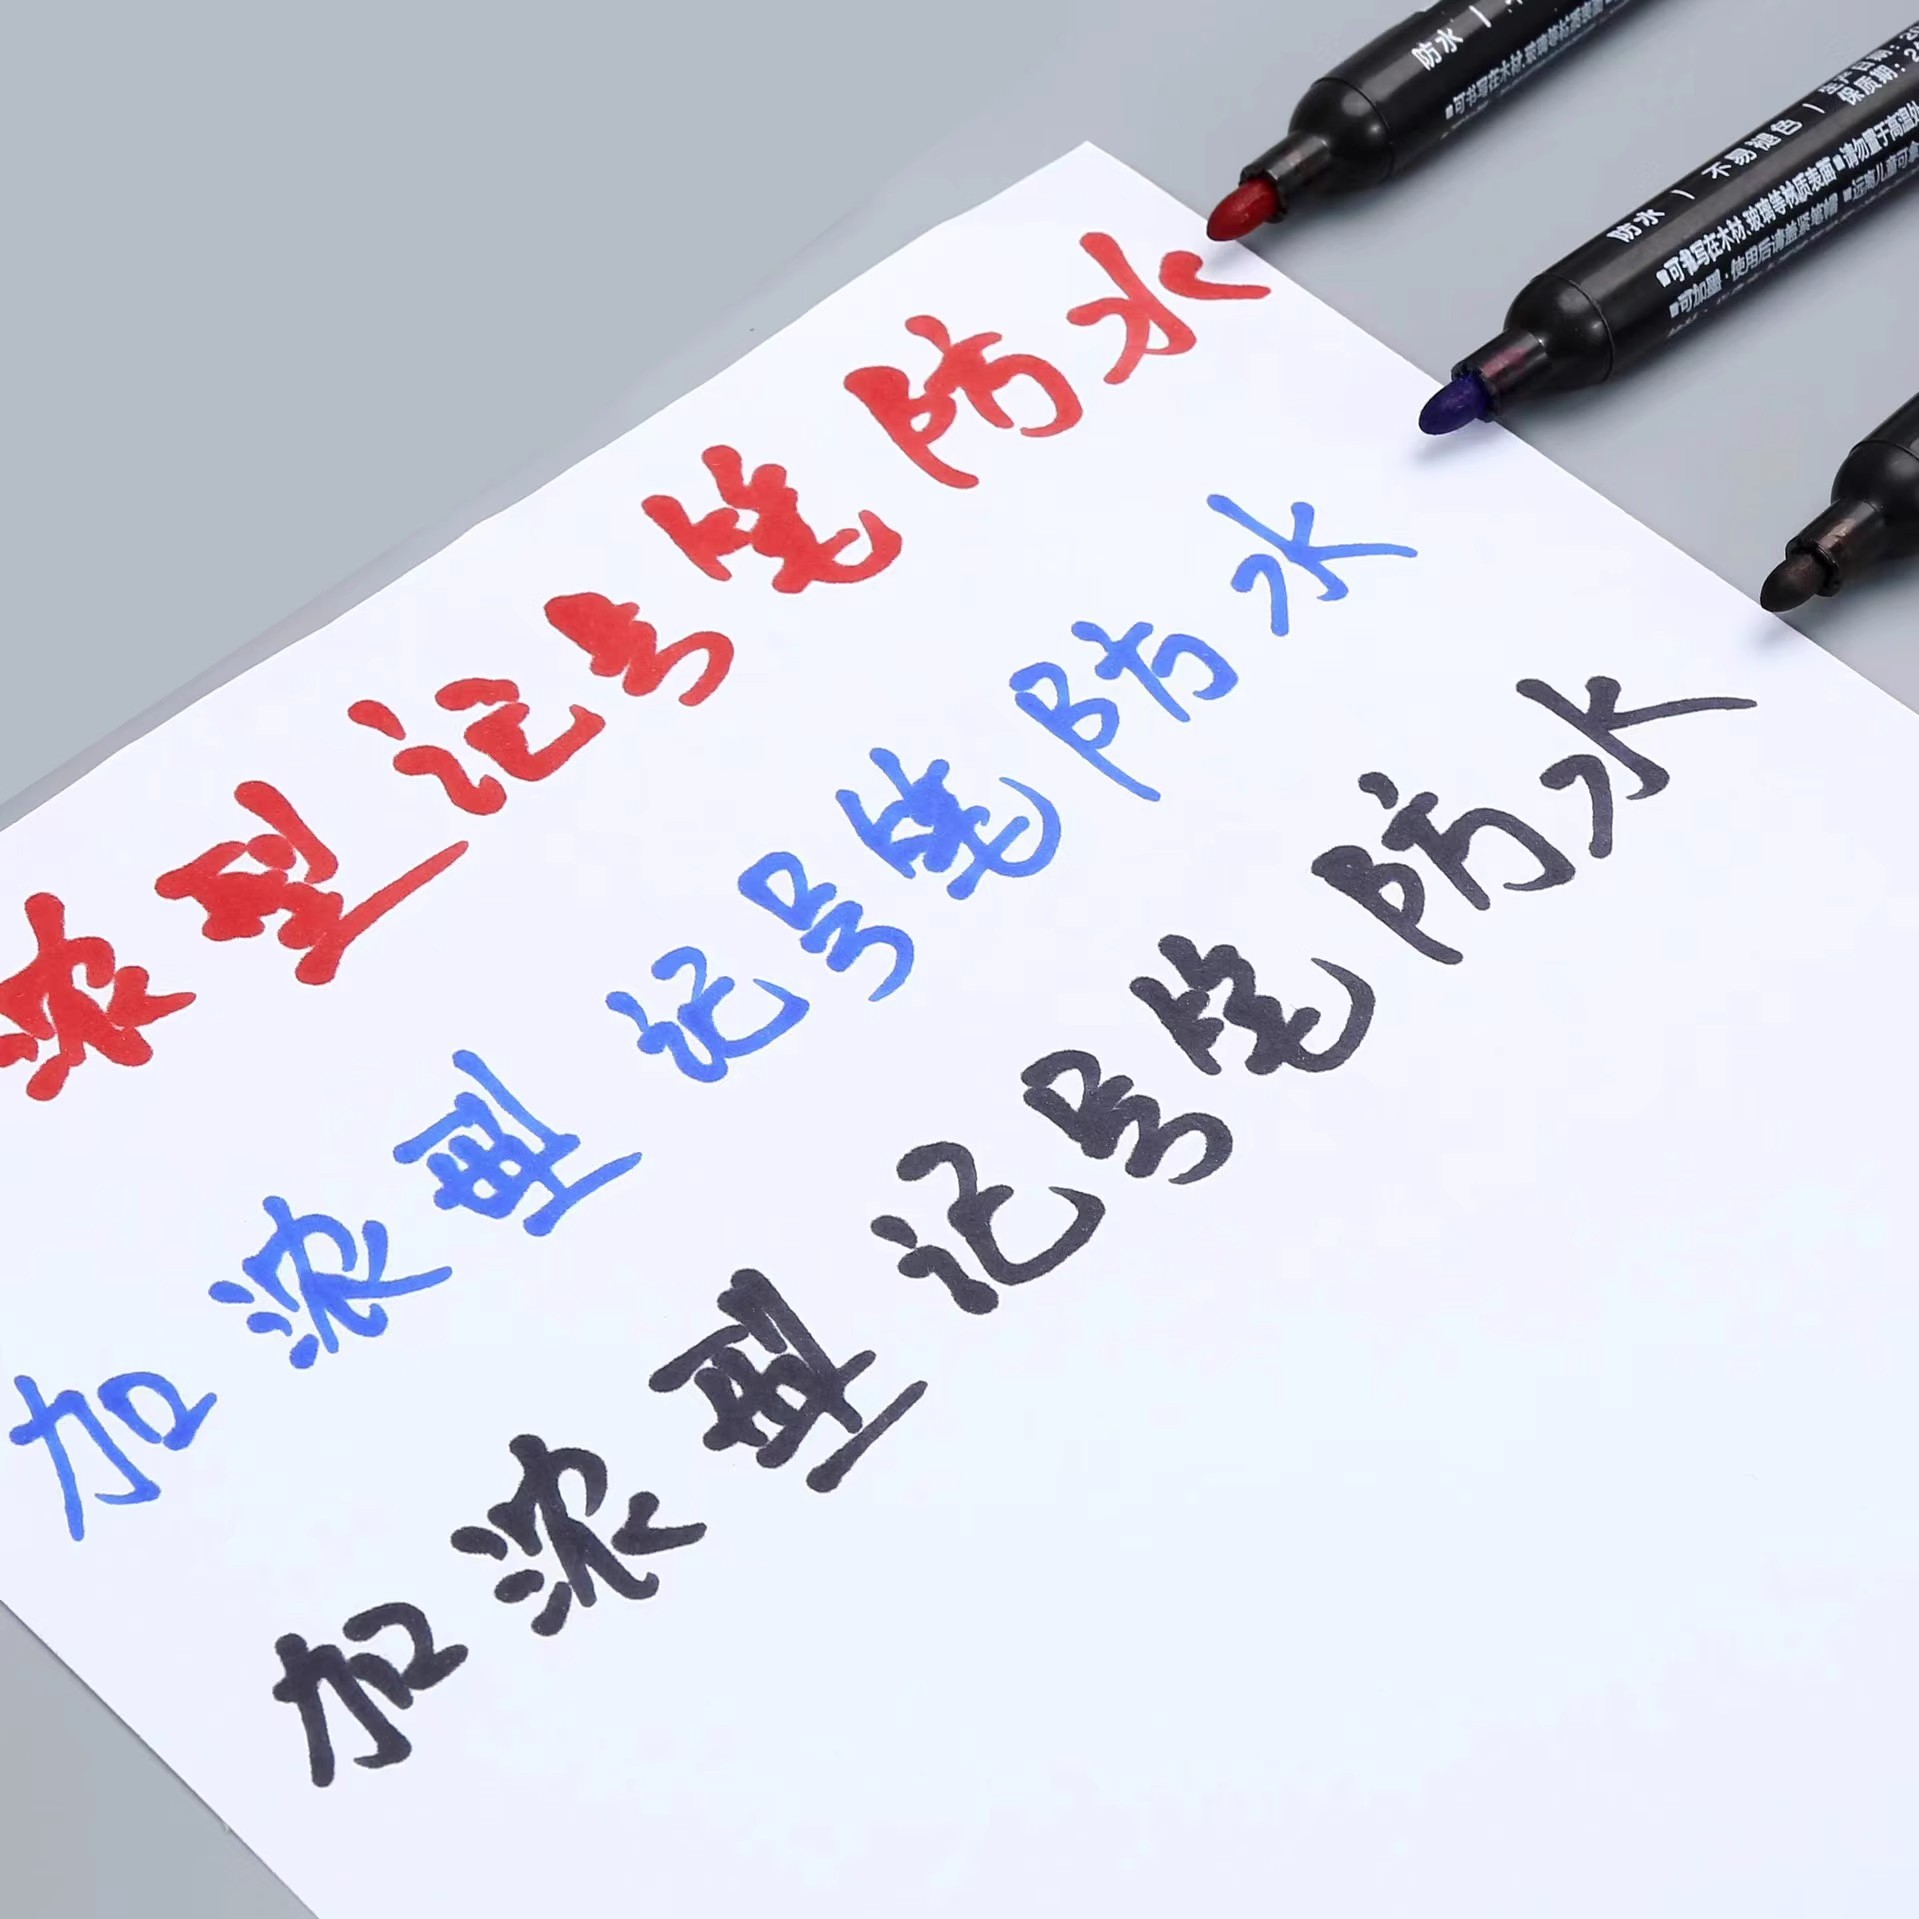 浓型记号笔防水
加浓型记号笔防水
加浓型记号笔防水
防水 |
■可书写在木材、玻璃等材质表面
防水 | 不易褪色 |
生产日期：20
保质期：2
■可书写在木材、玻璃等材质表面 ■请勿置于高温处
■可加墨·使用后请盖紧笔帽 ■远离儿童可拿